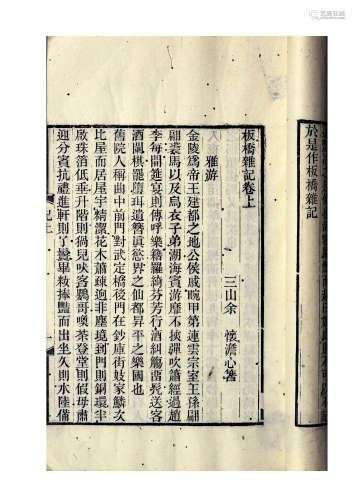 於是作板橋雜記
板橋雜記卷上
三山余 懷澹心著
雅游
金陵爲帝王建都之地公侯戚畹甲第連雲宗室王孫翩
翩裘馬以及烏衣子弟湖海賓游靡不挾彈吹簫經過趙
李每開筵宴則傳呼樂籍羅綺芬芳行酒糾觴留髠送客
酒闌棋罷墮珥遺簪眞慾界之仙都昇平之樂國也
舊院人稱曲中前門對武定橋後門在鈔庫街妓家鱗次
比屋而居屋宇精潔花木蕭疎迥非塵境到門則銅環半
啟珠箔低垂升階則猧兒吠客鸚哥喚茶登堂則假母肅
迎分賓抗禮進軒則丫鬟畢妝捧豔而出坐久則水陸備